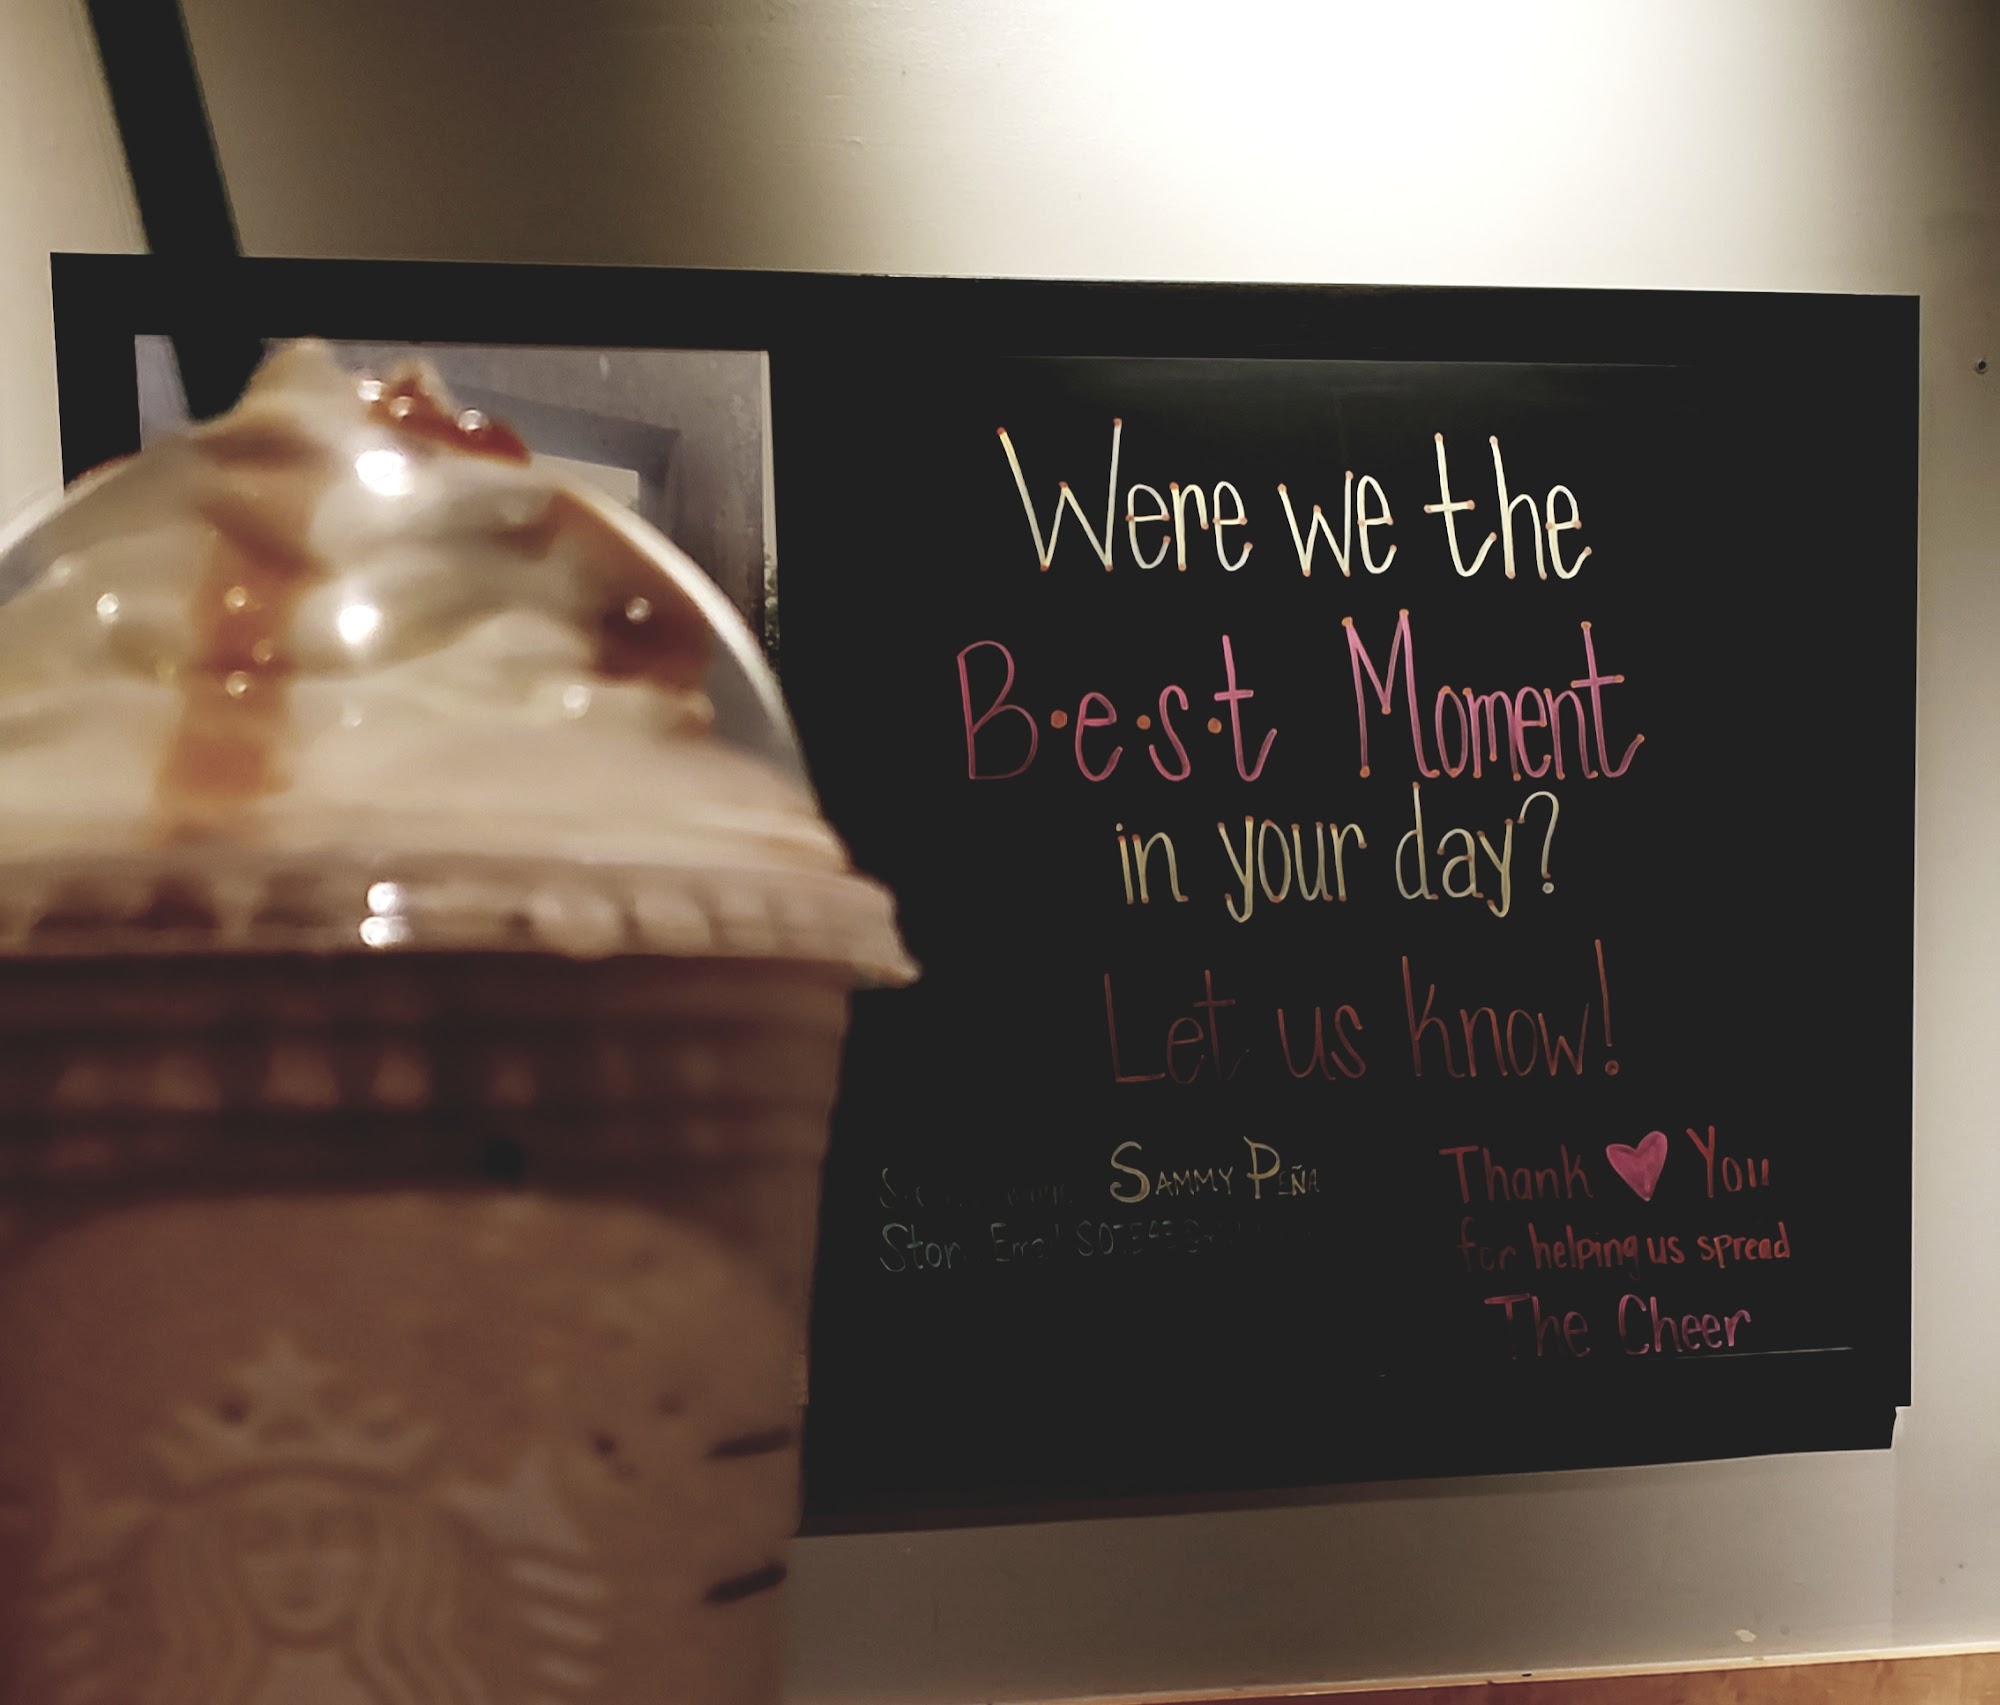 Were we the
B·e·s·t Moment
in your day?
Let us know!
SAMMY PEÑA
Email
Thank You
for helping us spread
The Cheer